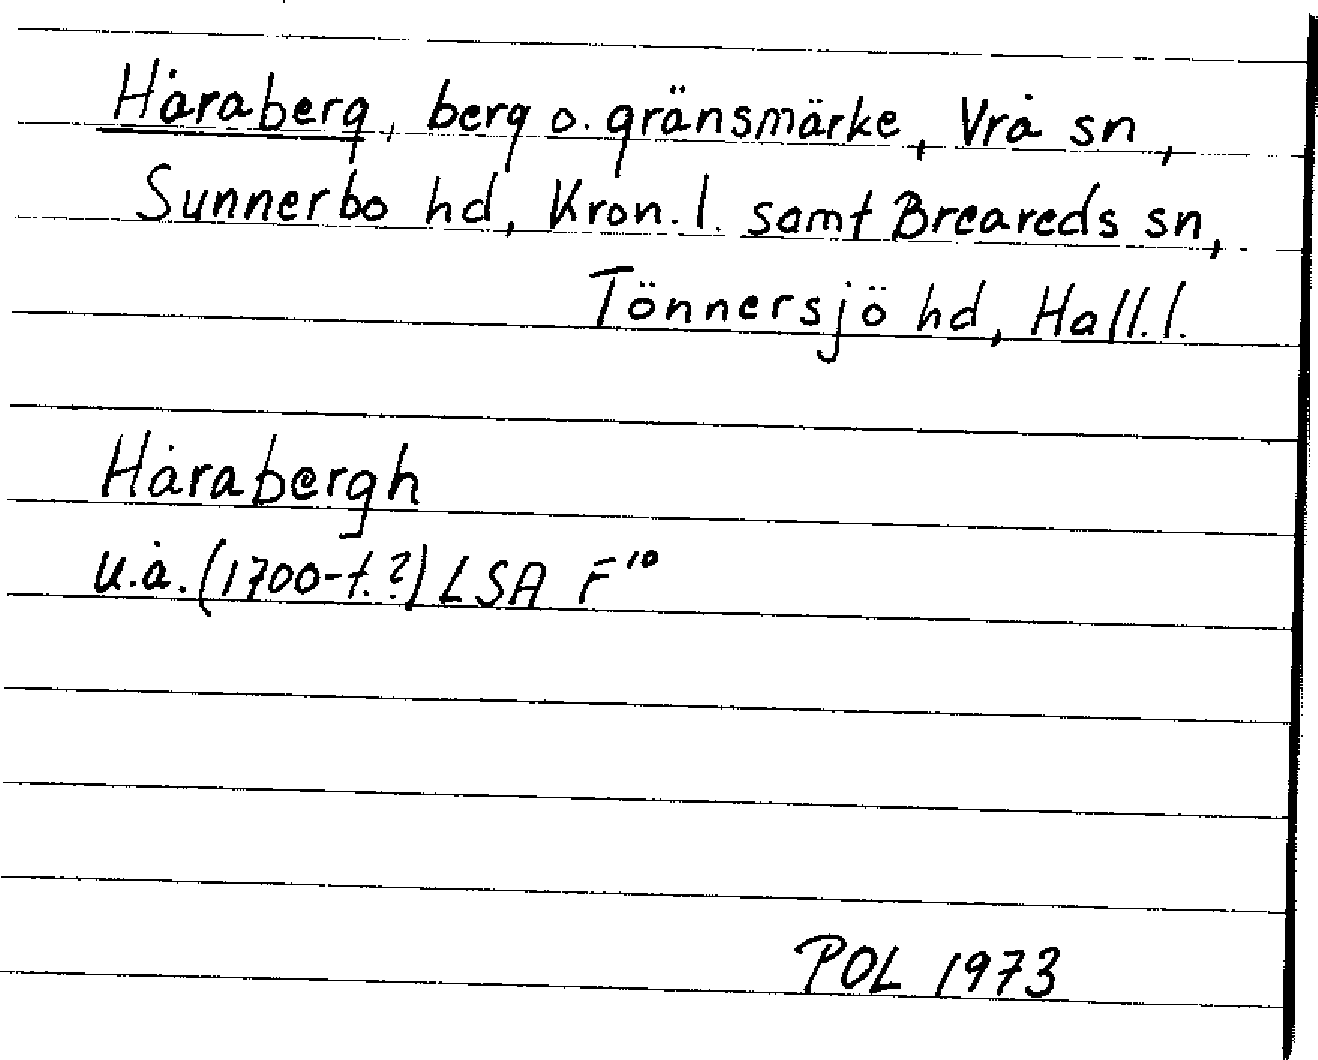 Håraberg, berg o. gränsmärke, Vrå sn,
Sunnerbo hd, Kron. l. samt Breareds sn,
Tönnersjö hd, Hall. l.
Hårabergh
u.å. (1700-t.?) LSA F¹⁰
POL 1973